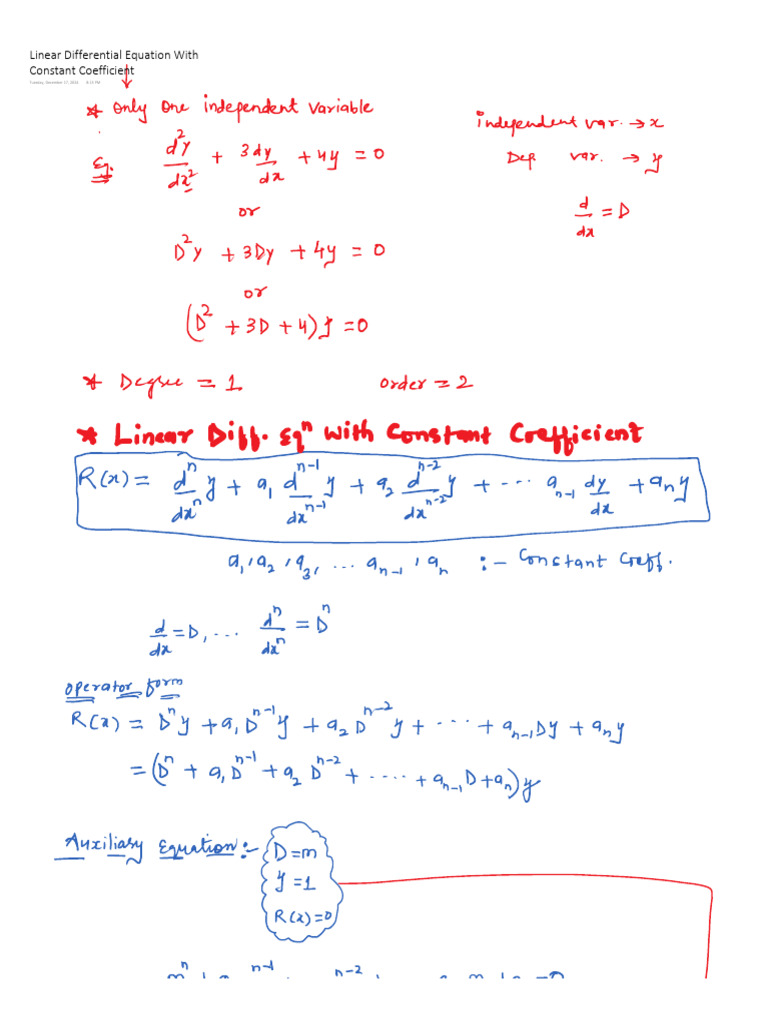 Linear Differential Equation With
Constant Coefficient
Tuesday, November 17, 2015 8:15 PM
* Only One independent Variable
independent var. → x
Eg. d²y/dx² + 3dy/dx + 4y = 0
Dep var. → y
or
d/dx = D
D²y + 3Dy + 4y = 0
or
(D² + 3D + 4)y = 0
* Degree = 1 order = 2
* Linear Diff. Eqⁿ With Constant Coefficient
R(x) = dⁿ/dxⁿ y + a₁ dⁿ⁻¹/dxⁿ⁻¹ y + a₂ dⁿ⁻²/dxⁿ⁻² y + ... aₙ₋₁ dy/dx + aₙy
a₁, a₂, a₃, ... aₙ₋₁, aₙ :- Constant Coeff.
d/dx = D, ... dⁿ/dxⁿ = Dⁿ
operator form
R(x) = Dⁿy + a₁Dⁿ⁻¹y + a₂Dⁿ⁻²y + ... + aₙ₋₁Dy + aₙy
= (Dⁿ + a₁Dⁿ⁻¹ + a₂Dⁿ⁻² + .... + aₙ₋₁D + aₙ)y
Auxiliary Equation:-
D = m
y = 1
R(x) = 0